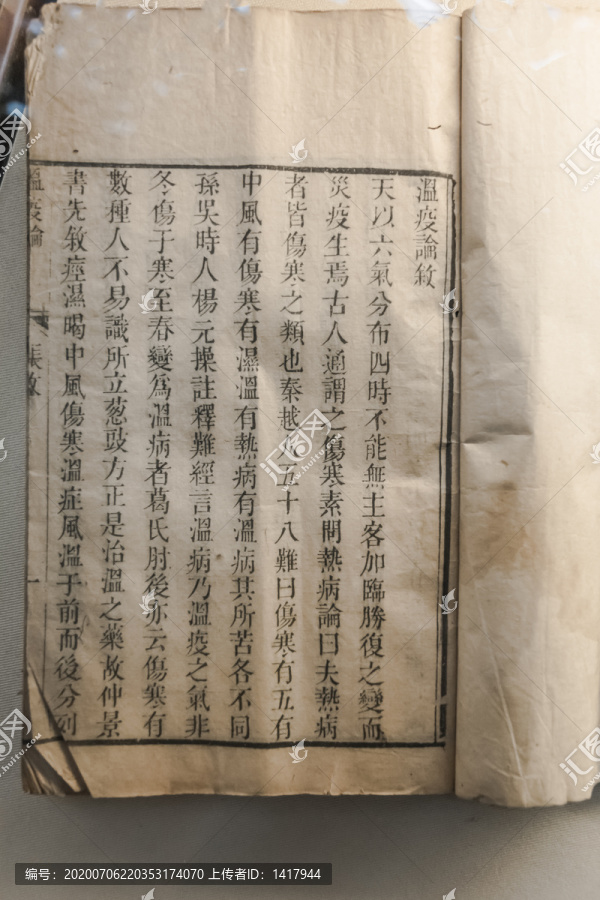 溫疫論敘
天以六氣分布四時不能無主客加臨勝復之變而
災疫生焉古人通謂之傷寒素問熱病論曰夫熱病
者皆傷寒之類也秦越人五十八難曰傷寒有五有
中風有傷寒有濕溫有熱病有溫病其所苦各不同
孫吳時人楊元操註釋難經言溫病乃溫疫之氣非
冬傷于寒至春變為溫病者葛氏肘後亦云傷寒有
數種人不易識所立葱豉方正是治溫之藥故仲景
書先敘痙濕暍中風傷寒溫症風溫于前而後分列
溫疫論
敘
一
编号：20200706220353174070 上传者ID：1417944
汇图网
www.huitu.com